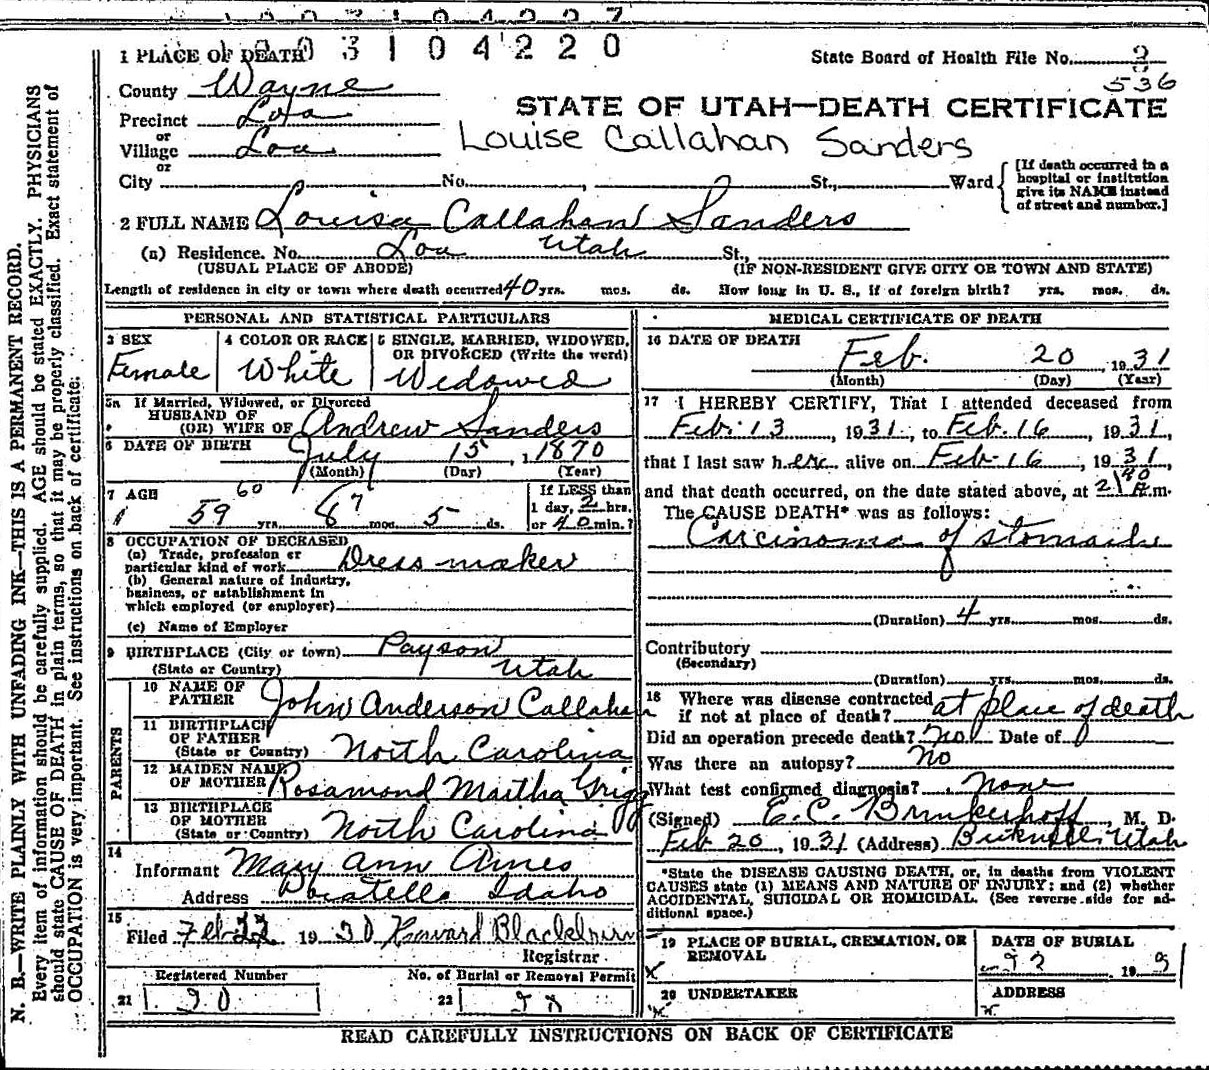 1003104220
1 PLACE OF DEATH
State Board of Health File No. 3
536
County Wayne
STATE OF UTAH—DEATH CERTIFICATE
Precinct Loa
or
Village Loa
Louise Callahan Sanders
or
City No. , St., Ward
[If death occurred in a
hospital or institution
give its NAME instead
of street and number.]
2 FULL NAME Louisa Callahan Sanders
(a) Residence. No. Loa Utah St.,
(USUAL PLACE OF ABODE) (IF NON-RESIDENT GIVE CITY OR TOWN AND STATE)
Length of residence in city or town where death occurred 40 yrs. mos. ds. How long in U. S., if of foreign birth? yrs. mos. ds.
PERSONAL AND STATISTICAL PARTICULARS
3 SEX
Female
4 COLOR OR RACE
White
5 SINGLE, MARRIED, WIDOWED,
OR DIVORCED (Write the word)
Widowed
5a If Married, Widowed, or Divorced
HUSBAND OF
(OR) WIFE OF Andrew Sanders
6 DATE OF BIRTH
July 15, 1870
(Month) (Day) (Year)
7 AGE 60
59 yrs. 6 7 mos. 5 ds.
If LESS than
1 day, 2 hrs.
or 40 min.?
8 OCCUPATION OF DECEASED
(a) Trade, profession or
particular kind of work Dress maker
(b) General nature of industry,
business, or establishment in
which employed (or employer)
(c) Name of Employer
9 BIRTHPLACE (City or town) Payson
(State or Country) Utah
PARENTS
10 NAME OF
FATHER John Anderson Callahan
11 BIRTHPLACE
OF FATHER
(State or Country) North Carolina
12 MAIDEN NAME
OF MOTHER Rosamond Martha Grigg
13 BIRTHPLACE
OF MOTHER
(State or Country) North Carolina
14
Informant Mary Ann Ames
Address Pocatello Idaho
15
Filed Feb 22 1930 Blackburn
Registrar
Registered Number No. of Burial or Removal Permit
21 22
MEDICAL CERTIFICATE OF DEATH
16 DATE OF DEATH
Feb. 20, 1931
(Month) (Day) (Year)
17 I HEREBY CERTIFY, That I attended deceased from
Feb. 13, 1931, to Feb. 16, 1931,
that I last saw her alive on Feb. 16, 1931,
and that death occurred, on the date stated above, at 2:40 m.
The CAUSE DEATH* was as follows:
Carcinoma of stomach
(Duration) 4 yrs. mos. ds.
Contributory
(Secondary)
(Duration) yrs. mos. ds.
18 Where was disease contracted
if not at place of death? at place of death
Did an operation precede death? no Date of
Was there an autopsy? No
What test confirmed diagnosis? none
(Signed) E. C. Brinkerhoff, M. D.
Feb 20, 1931 (Address) Bicknell Utah
*State the DISEASE CAUSING DEATH, or, in deaths from VIOLENT
CAUSES state (1) MEANS AND NATURE OF INJURY; and (2) whether
ACCIDENTAL, SUICIDAL OR HOMICIDAL. (See reverse side for ad-
ditional space.)
19 PLACE OF BURIAL, CREMATION, OR
REMOVAL
DATE OF BURIAL
20 UNDERTAKER
ADDRESS
READ CAREFULLY INSTRUCTIONS ON BACK OF CERTIFICATE
N. B.—WRITE PLAINLY WITH UNFADING INK—THIS IS A PERMANENT RECORD.
Every item of information should be carefully supplied. AGE should be stated EXACTLY. PHYSICIANS
should state CAUSE OF DEATH in plain terms, so that it may be properly classified. Exact statement of
OCCUPATION is very important. See instructions on back of certificate.